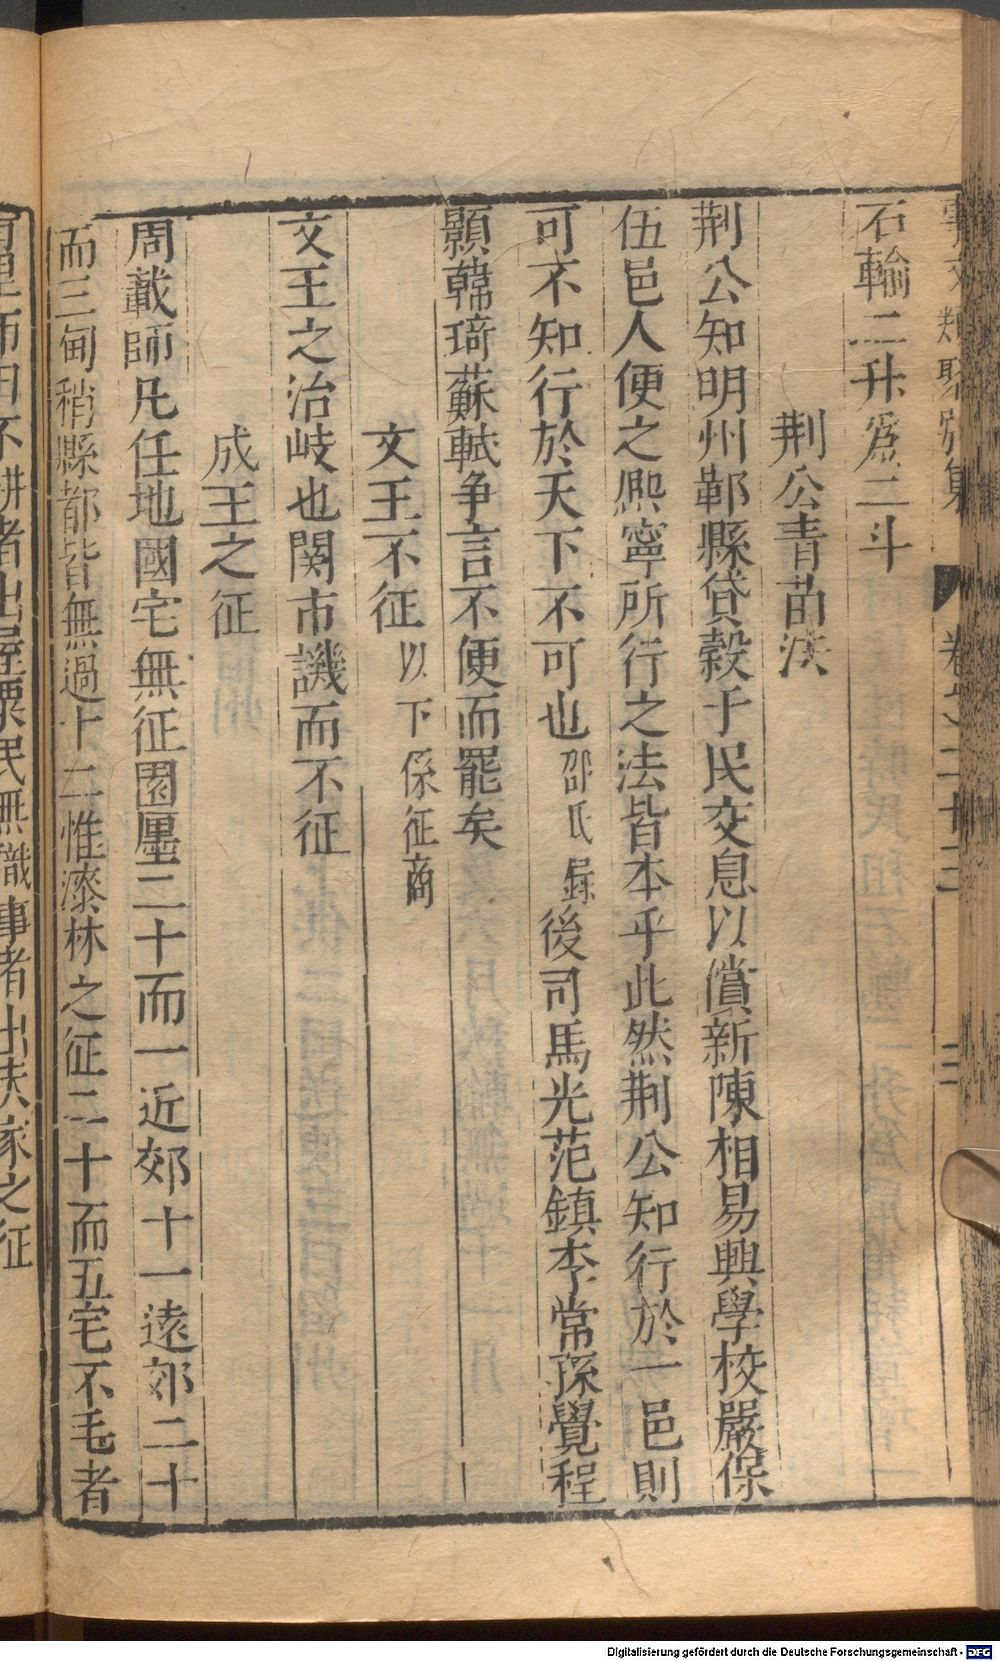 石輸二升爲二斗
荆公青苗法
荆公知明州鄞縣貸穀于民交息以償新陳相易興學校嚴保
伍邑人便之熈寧所行之法皆本乎此然荆公知行於一邑則
可不知行於天下不可也邵氏録後司馬光范鎮李常孫覺程
顥韓琦蘇軾争言不便而罷矣
文王不征以下係征商
文王之治岐也関市譏而不征
成王之征
周載師凡任地國宅無征園厘二十而一近郊十一遠郊二十
而三甸稍縣都皆無過十二惟漆林之征二十而五宅不毛者
不耕者出屋粟民無職事者出夫家之征
Digitalisierung gefördert durch die Deutsche Forschungsgemeinschaft - DFG